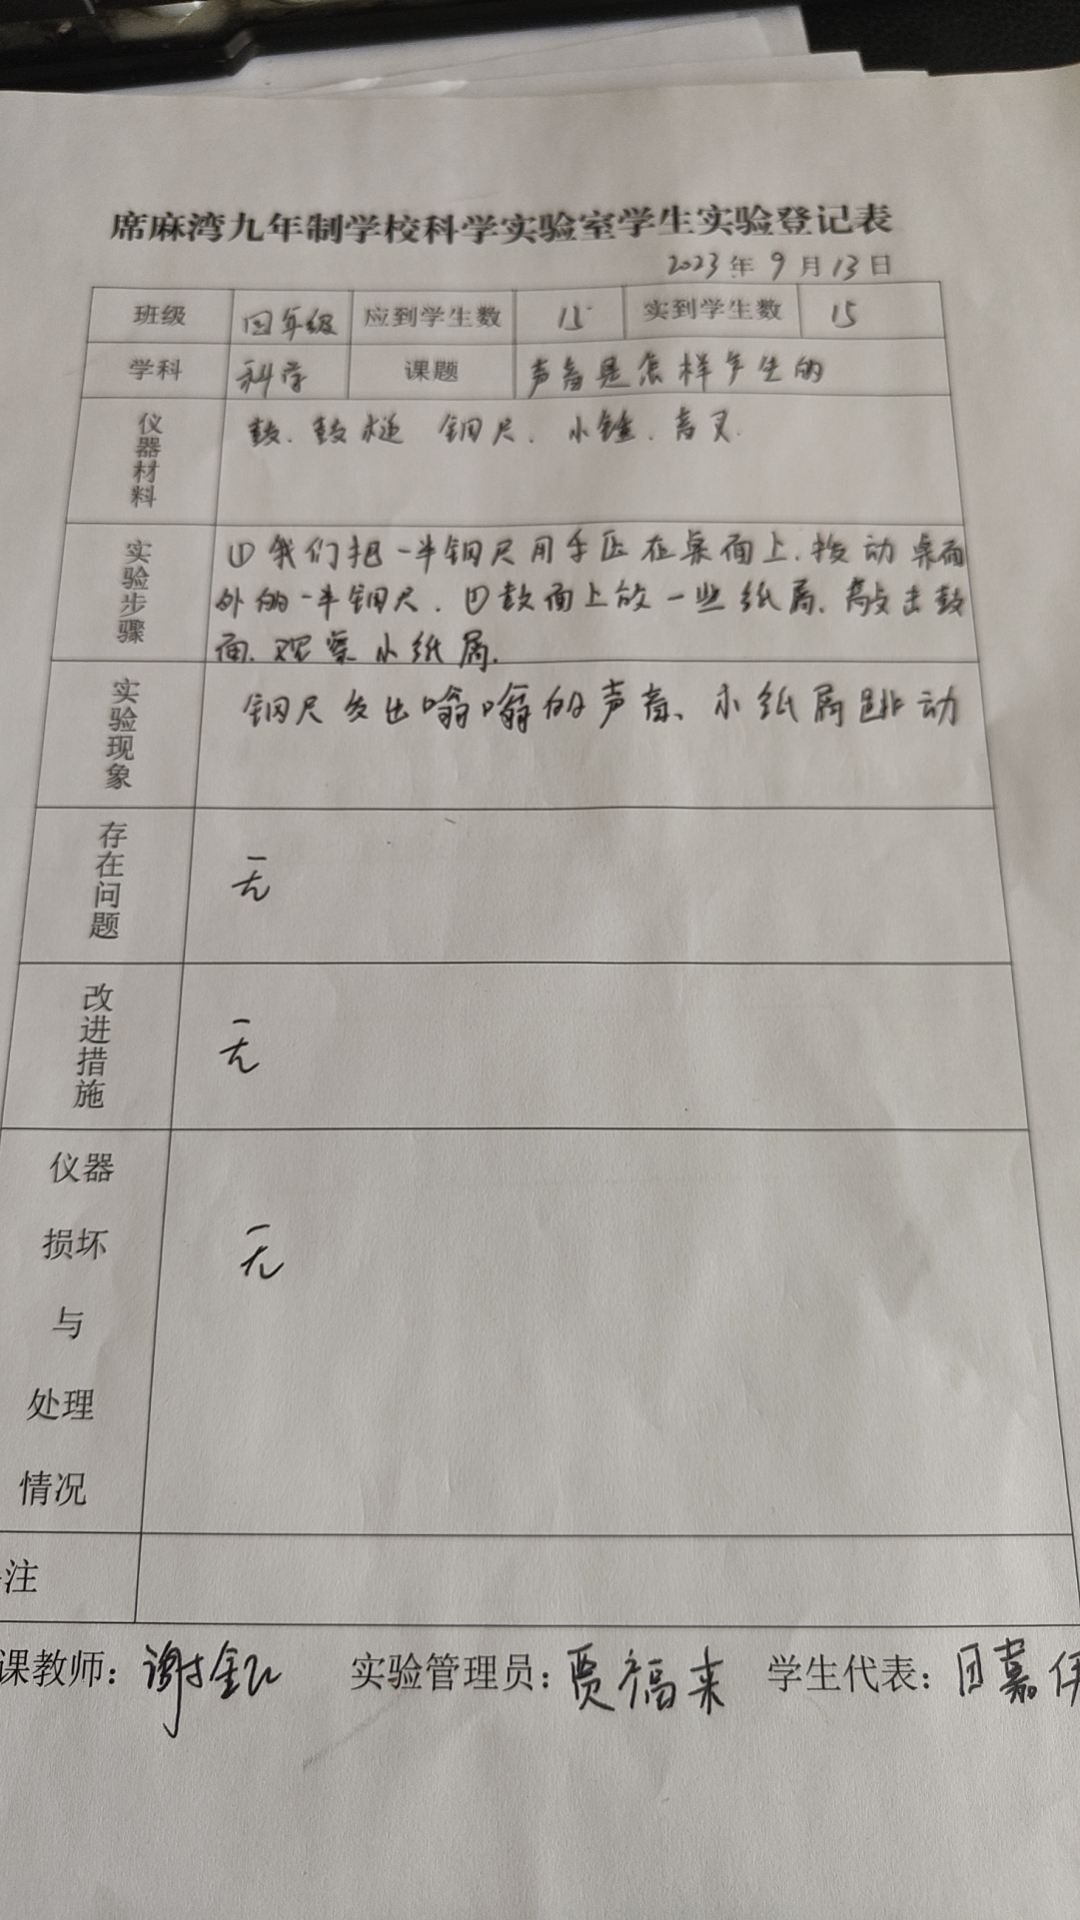 席麻湾九年制学校科学实验室学生实验登记表
2023年9月13日
班级 四年级 应到学生数 15 实到学生数 15
学科 科学 课题 声音是怎样产生的
仪器材料 鼓、鼓槌 钢尺、小锤、音叉.
实验步骤 ①我们把一半钢尺用手压在桌面上.拨动桌面
外的一半钢尺.①鼓面上放一些纸屑、敲击鼓
面.观察小纸屑.
实验现象 钢尺发出嗡嗡的声音、小纸屑跳动
存在问题 无
改进措施 无
仪器
损坏
与 无
处理
情况
注
课教师: 谢 实验管理员: 贾福来 学生代表: 嘉